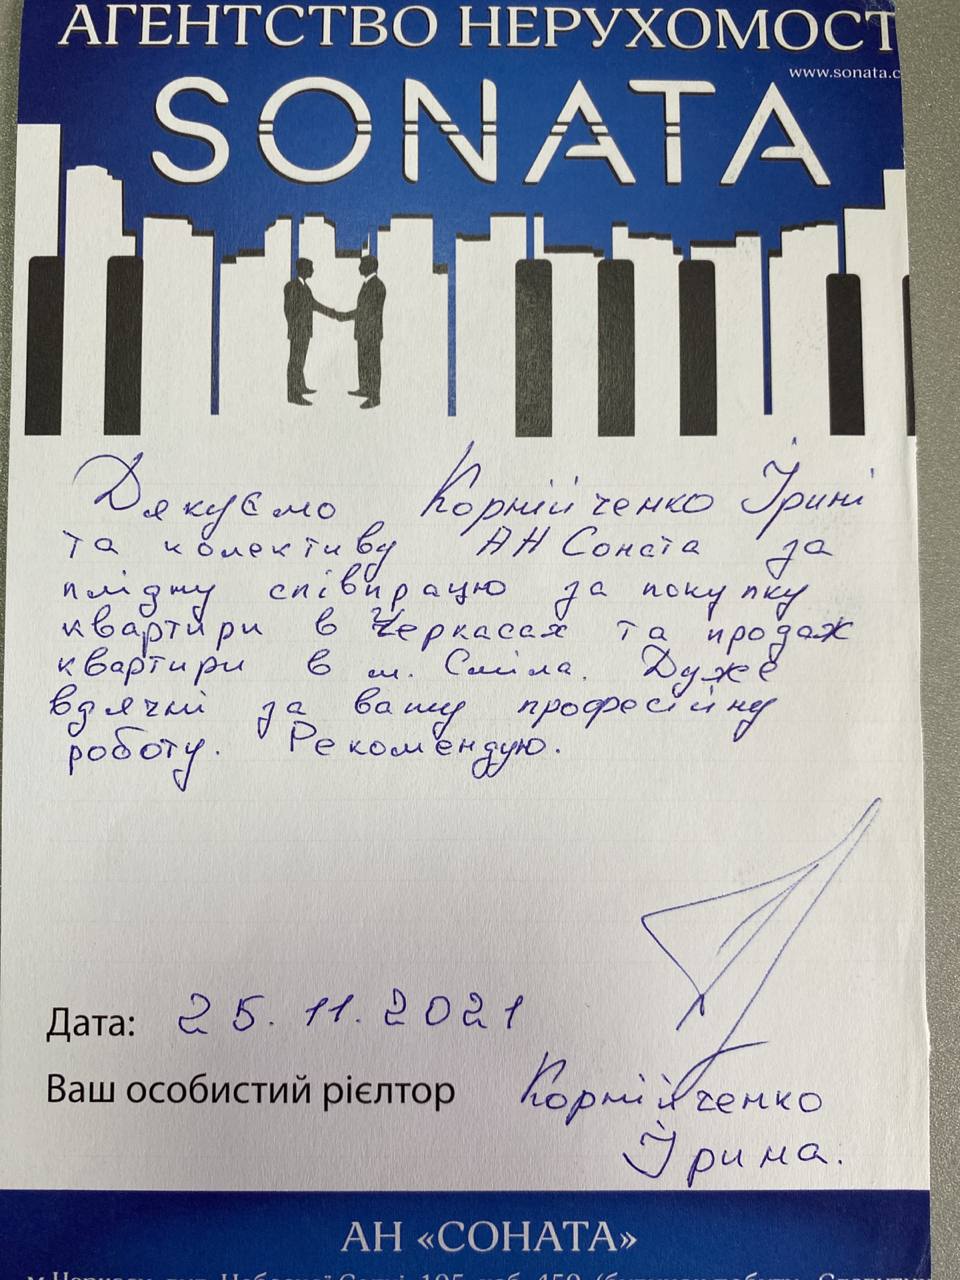 АГЕНТСТВО НЕРУХОМОСТ
www.sonata.c
SONATA
Дякуємо Корнійченко Ірині
та колективу АН Соната за
плідну співпрацю за покупку
квартири в Черкасах та продаж
квартири в м. Сміла. Дуже
вдячні за вашу професійну
роботу. Рекомендую.
Дата: 25.11.2021
Ваш особистий рієлтор Корнійченко
Ірина.
АН «СОНАТА»